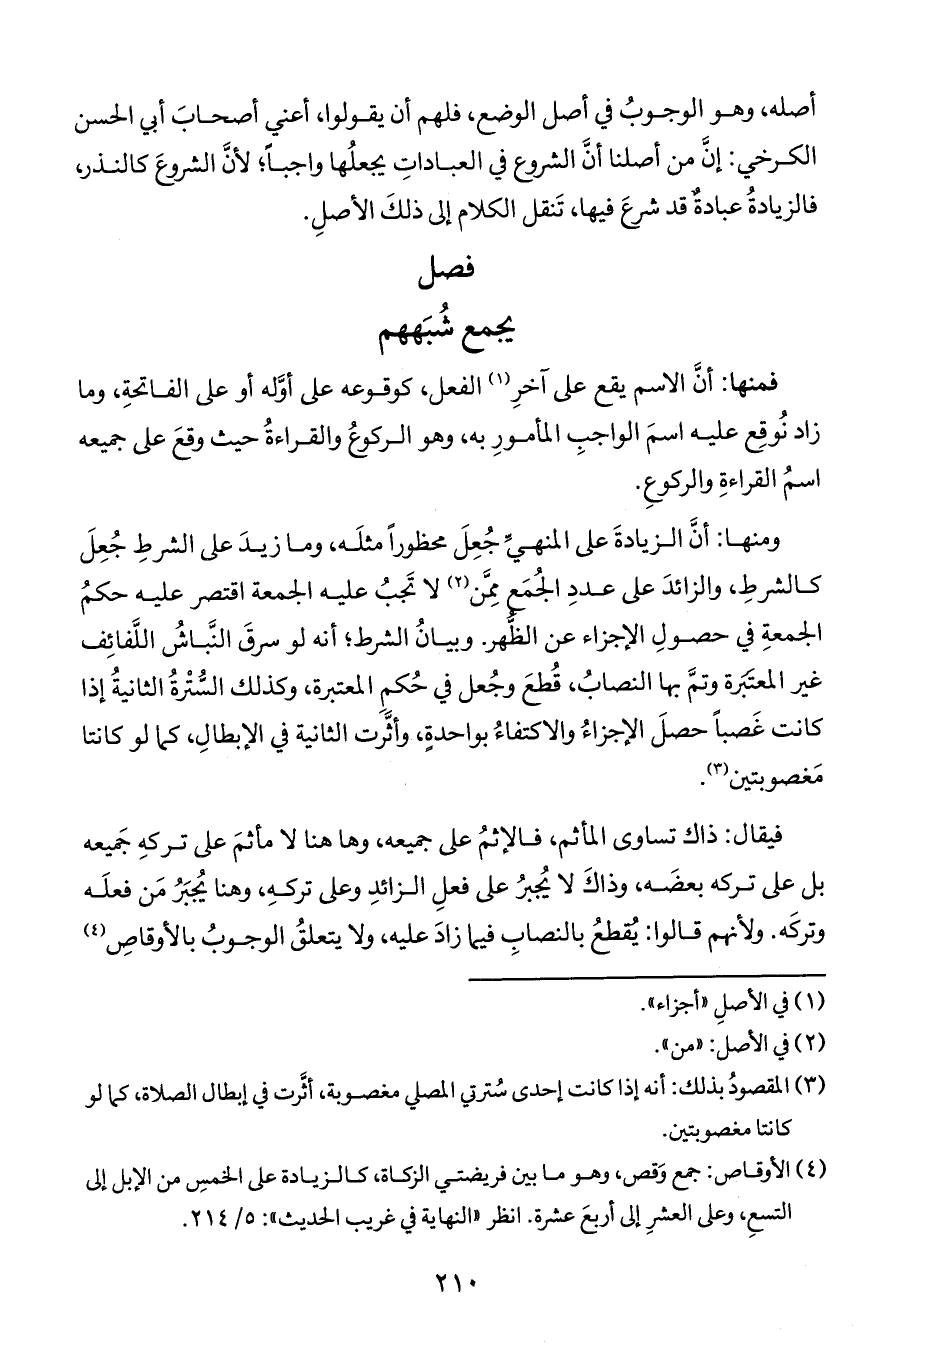 أصله، وهو الوجوبُ في أصل الوضع، فلهم أن يقولوا، أعني أصحابَ أبي الحسن
الكرخي: إنَّ من أصلنا أنَّ الشروع في العباداتِ يجعلُها واجباً؛ لأنَّ الشروعَ كالنذر،
فالزيادةُ عبادةٌ قد شرعَ فيها، تَنقل الكلام إلى ذلكَ الأصلِ.
فصل
يجمع شُبَههم
فمنها: أنَّ الاسم يقع على آخرِ(١) الفعل، كوقوعه على أوَّله أو على الفاتحةِ، وما
زاد نُوقِع عليه اسمَ الواجبِ المأمورِ به، وهو الركوعُ والقراءةُ حيث وقعَ على جميعه
اسمُ القراءةِ والركوعِ.
ومنها: أنَّ الزيادةَ على المنهيِّ جُعِلَ محظوراً مثلَه، وما زيدَ على الشرطِ جُعِلَ
كالشرطِ، والزائدَ على عددِ الجُمَعِ مِمَّن(٢) لا تَجبُ عليه الجمعة اقتصر عليه حكمُ
الجمعةِ في حصولِ الإجزاء عن الظُّهر. وبيانُ الشرط؛ أنه لو سرقَ النَّباشُ اللَّفائِف
غير المعتَبَرة وتمَّ بها النصابُ، قُطعَ وجُعل في حُكمِ المعتبرة، وكذلك السُّتْرةُ الثانيةُ إذا
كانت غَصباً حصلَ الإجزاءُ والاكتفاءُ بواحدةٍ، وأثَّرت الثانية في الإبطالِ، كما لو كانتا
مَغصوبتين(٣).
فيقال: ذاك تساوى المأثم، فالإثمُ على جميعه، وها هنا لا مأثمَ على تركهِ جَميعه
بل على تركه بعضَه، وذاكَ لا يُجبرُ على فعلِ الزائدِ وعلى تركهِ، وهنا يُجبَرُ مَن فعلَه
وتركَه. ولأنهم قالوا: يُقطعُ بالنصابِ فيما زادَ عليه، ولا يتعلقُ الوجوبُ بالأوقاصِ(٤)
(١) في الأصلِ «أجزاء».
(٢) في الأصل: «من».
(٣) المقصودُ بذلك: أنه إذا كانت إحدى سُترتي المصلي مغصوبة، أثَّرت في إبطال الصلاة، كما لو
كانتا مغصوبتين.
(٤) الأوقاص: جمع وَقص، وهو ما بين فريضتي الزكاة، كالزيادة على الخمسِ من الإبل إلى
التسعِ، وعلى العشرِ إلى أربعَ عشرة. انظر «النهاية في غريب الحديث»: ٥/ ٢١٤.
٢١٠